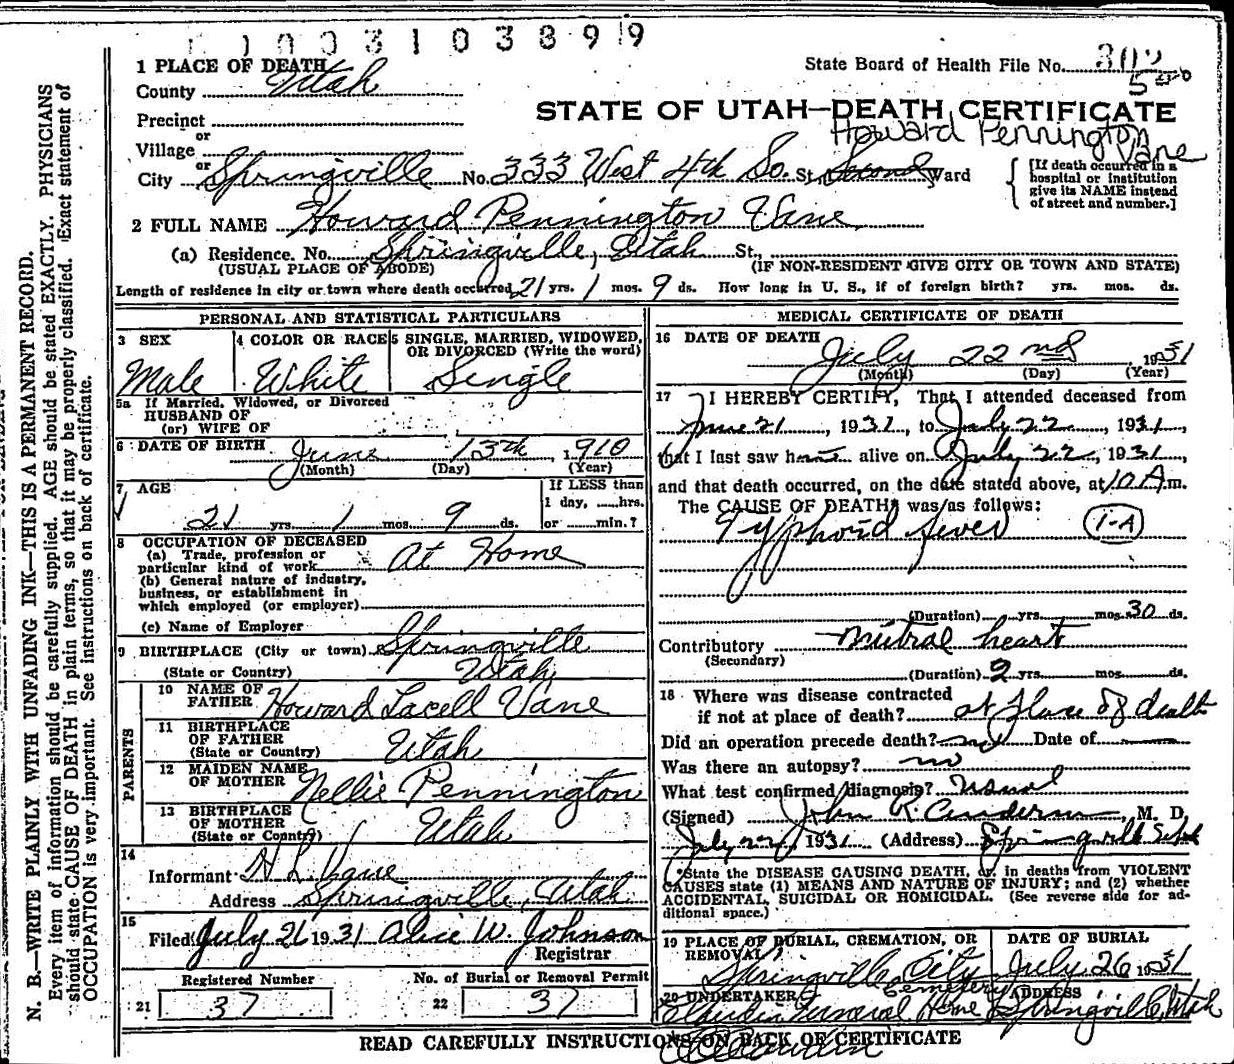 1003103899
1 PLACE OF DEATH
County Utah
State Board of Health File No. 302
STATE OF UTAH—DEATH CERTIFICATE
Precinct
or
Village
Howard Pennington Vane
or
City Springville No. 333 West 4th So. St. Second Ward
[If death occurred in a hospital or institution give its NAME instead of street and number.]
2 FULL NAME Howard Pennington Vane
(a) Residence. No. Springville, Utah St.,
(USUAL PLACE OF ABODE) (IF NON-RESIDENT GIVE CITY OR TOWN AND STATE)
Length of residence in city or town where death occurred 21 yrs. 1 mos. 9 ds. How long in U. S., if of foreign birth? yrs. mos. ds.
PERSONAL AND STATISTICAL PARTICULARS
3 SEX 4 COLOR OR RACE 5 SINGLE, MARRIED, WIDOWED,
OR DIVORCED (Write the word)
Male White Single
5a If Married, Widowed, or Divorced
HUSBAND OF
(or) WIFE OF
6 DATE OF BIRTH June 13th, 1910
(Month) (Day) (Year)
7 AGE If LESS than
1 day, hrs.
21 yrs. 1 mos. 9 ds. or min.?
8 OCCUPATION OF DECEASED
(a) Trade, profession or
particular kind of work At Home
(b) General nature of industry,
business, or establishment in
which employed (or employer)
(c) Name of Employer
9 BIRTHPLACE (City or town) Springville
(State or Country) Utah
PARENTS
10 NAME OF
FATHER Howard Lacell Vane
11 BIRTHPLACE
OF FATHER
(State or Country) Utah
12 MAIDEN NAME
OF MOTHER Nellie Pennington
13 BIRTHPLACE
OF MOTHER
(State or Country) Utah
14
Informant H. L. Vane
Address Springville, Utah
15
Filed July 26 1931 Alice W. Johnson
Registrar
Registered Number No. of Burial or Removal Permit
21 37 22 37
MEDICAL CERTIFICATE OF DEATH
16 DATE OF DEATH
July 22nd, 1931
(Month) (Day) (Year)
17 I HEREBY CERTIFY, That I attended deceased from
June 21, 1931, to July 22, 1931,
that I last saw h alive on July 22, 1931,
and that death occurred, on the date stated above, at 10 A.m.
The CAUSE OF DEATH was as follows:
Typhoid fever 1-A
(Duration) yrs. mos. 30 ds.
Contributory Mitral heart
(Secondary)
(Duration) 2 yrs. mos. ds.
18 Where was disease contracted
if not at place of death? at place of death
Did an operation precede death? no Date of
Was there an autopsy? no
What test confirmed diagnosis? usual
(Signed) John R. Anderson, M. D.
July 22, 1931 (Address) Springville Utah
*State the DISEASE CAUSING DEATH, or, in deaths from VIOLENT
CAUSES state (1) MEANS AND NATURE OF INJURY; and (2) whether
ACCIDENTAL, SUICIDAL OR HOMICIDAL. (See reverse side for ad-
ditional space.)
19 PLACE OF BURIAL, CREMATION, OR
REMOVAL DATE OF BURIAL
Springville City Cemetery July 26 1931
20 UNDERTAKER ADDRESS
Funeral Home Springville, Utah
READ CAREFULLY INSTRUCTIONS ON BACK OF CERTIFICATE
N. B.—WRITE PLAINLY WITH UNFADING INK—THIS IS A PERMANENT RECORD.
Every item of information should be carefully supplied. AGE should be stated EXACTLY. PHYSICIANS
should state CAUSE OF DEATH in plain terms, so that it may be properly classified. Exact statement of
OCCUPATION is very important. See instructions on back of certificate.